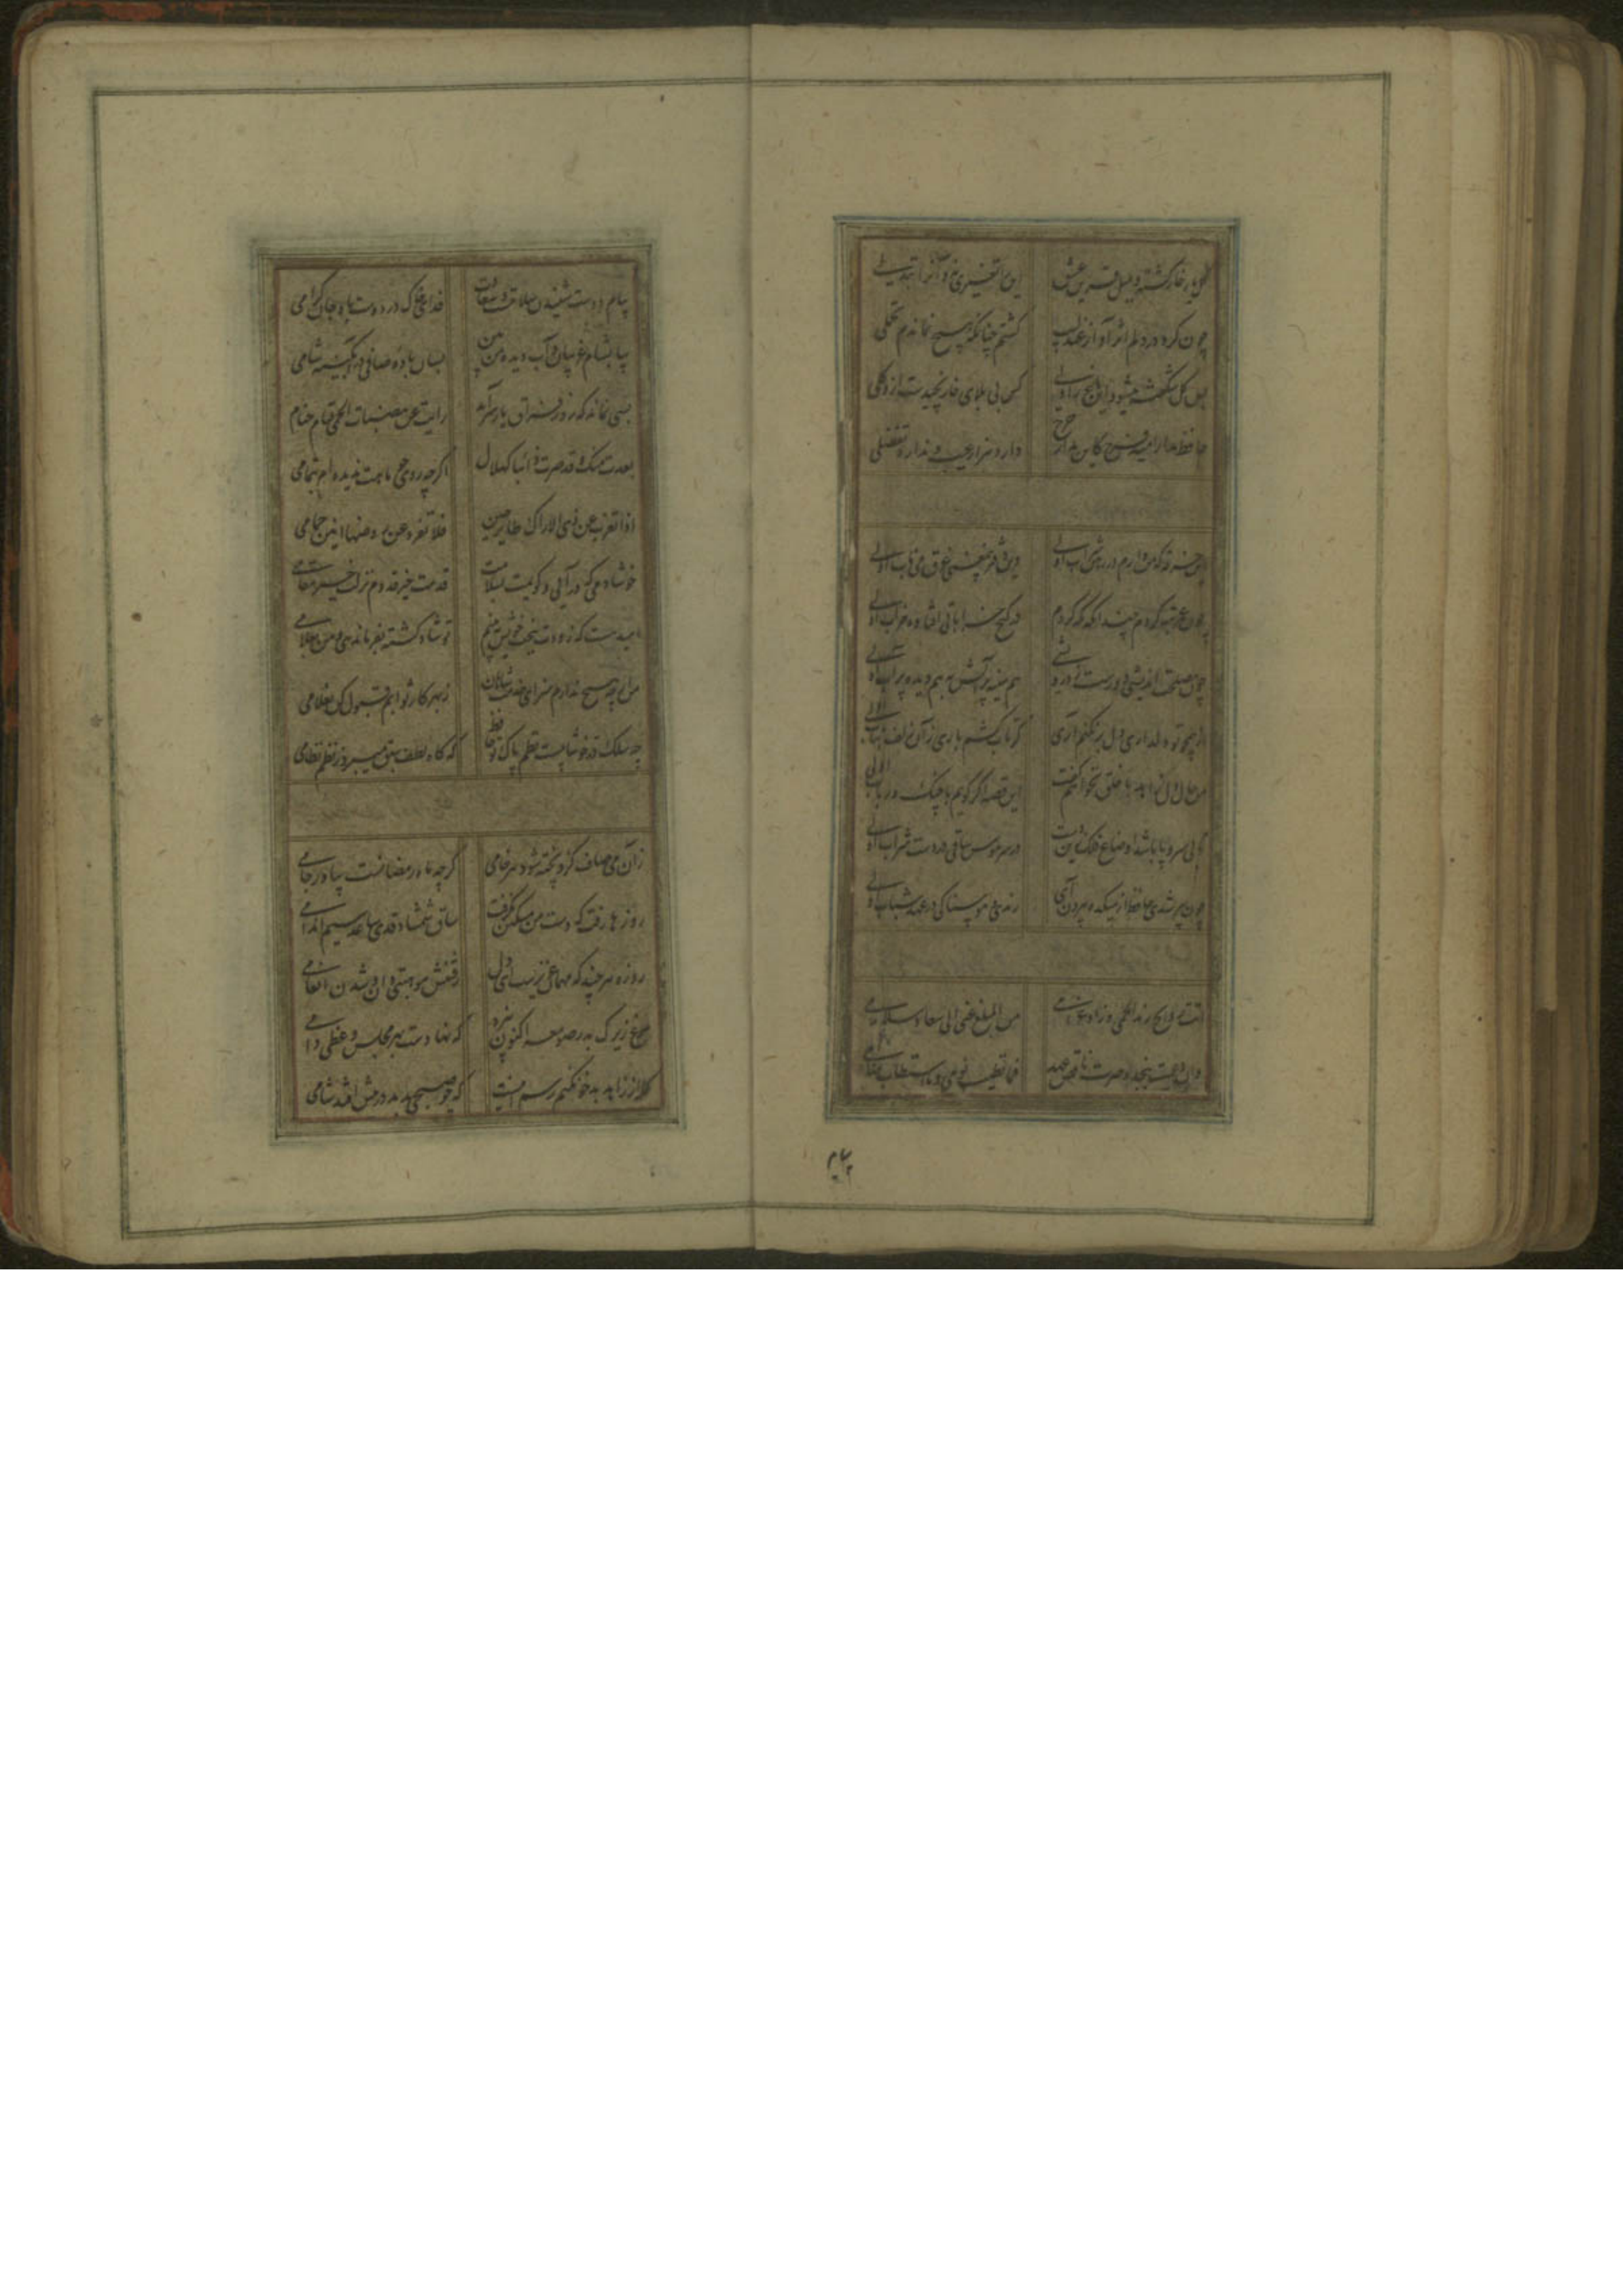 گل یار خار گشته و بلبل قرین عشق این را تغیری نه و آنرا تبدلی
چون کرد در دلم اثر آواز عندلیب گشتم چنانکه هیچ نماندم تحملی
بس گل شگفته میشود این باغ را ولی کس بی بلای خار نچیدست ازو گلی
حافظ مدار امید فرح کاین مدار چرخ دارد هزار عیب و ندارد تفضلی
این خرقه که من دارم در رهن شراب اولی وین دفتر بی‌معنی غرق می ناب اولی
چون عمر تبه کردم چندانکه نگه کردم در کنج خراباتی افتاده خراب اولی
چون مصلحت اندیشی دورست ز درویشی هم سینه پر آتش به هم دیده پر آب اولی
از همچو تو دلداری دل بر نکنم آری گر تاب کشم باری زان زلف بتاب اولی
من حال دل زاهد با خلق نخواهم گفت این قصه اگر گویم با چنگ و رباب اولی
تا بی سر و پا باشد اوضاع فلک زین دست در سر هوس ساقی در دست شراب اولی
چون پیر شدی حافظ از میکده بیرون آی رندی و هوسناکی در عهد شباب اولی
اتت روایح رند الحمی و زاد غرامی من المبلغ عنی الی سعاد سلامی
پیام
پیام دوست شنیدن سلامت و سعادت فدای خاک در دوست باد جان گرامی
بیا بشام غریبان و آب دیده من بین بسان باده صافی در آبگینه شامی
بسی نماند که روز فراق یار سرآید رایت من هضبات الحمی قباب خیام
بعدت منک و قد صرت ذائبا کهلال اگر چه روی چو ماهت ندیده‌ام بتمامی
اذا تغرب عن ذی الاراک طایر خیر فلا تفرد عن روضها انین حمامی
خوشا دمی که درآیی و گویمت بسلامت قدمت خیر قدوم نزلت خیر مقامی
امیدست که زودت ببخت خویش ببینم تو شاد گشته بفرماندهی و من بغلامی
من ارچه هیچ ندارم سزای خدمت شاهان ز بهر کار ثوابم قبول کن بغلامی
چو سلک در خوشابست نظم پاک تو حافظ که گاه لطف سبق میبرد ز نظم نظامی
زان می صاف کزو پخته شود هر خامی گرچه ماه رمضانست بیاور جامی
روزها رفت که دست من مسکین نگرفت ساق شمشاد قدی ساعد سیم اندامی
روزه هر چند که مهمان عزیزست ای دل رفتنش موهبتی دان و شدن انعامی
مرغ زیرک بدر صومعه اکنون نپرد که نهادست بهر مجلس وعظی دامی
گله از زاهد بدخو نکنم رسم اینست که چو صبحی بدمد در پیش افتد شامی